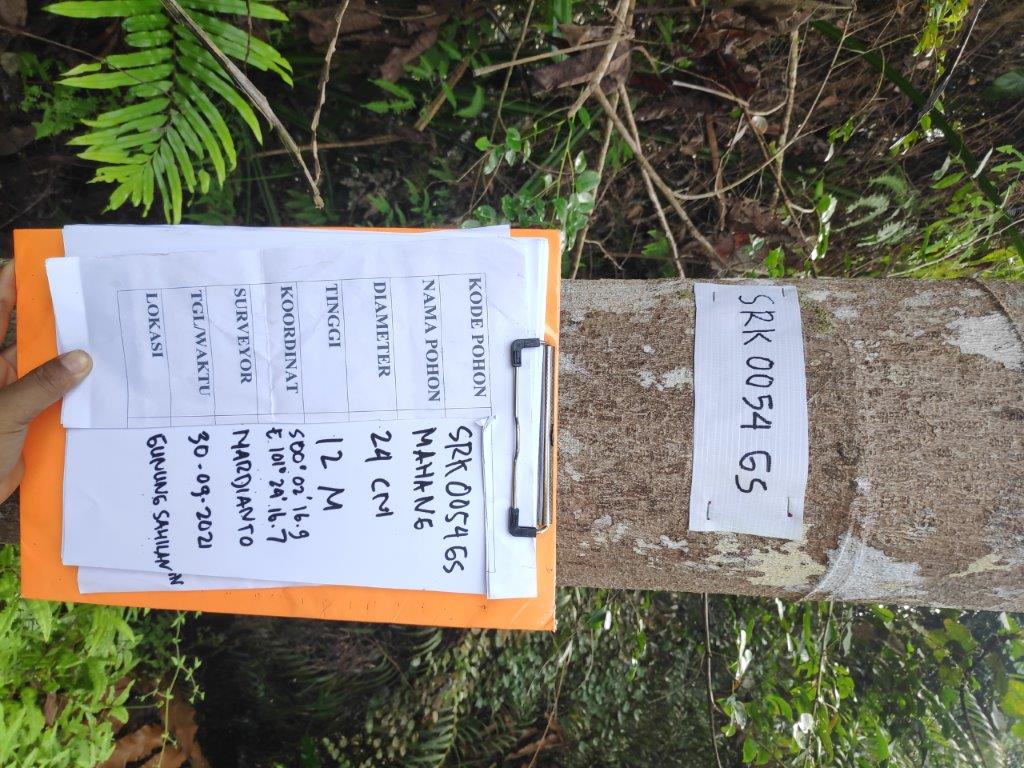 SRK 0054 GS
KODE POHON SRK 0054 GS
NAMA POHON MAHANG
DIAMETER 24 CM
TINGGI 12 M
KOORDINAT S 00° 02' 16.9
E 101° 24' 16.7
SURVEYOR MARDIANTO
TGL/WAKTU 30-09-2021
LOKASI GUNUNG SAHILAN